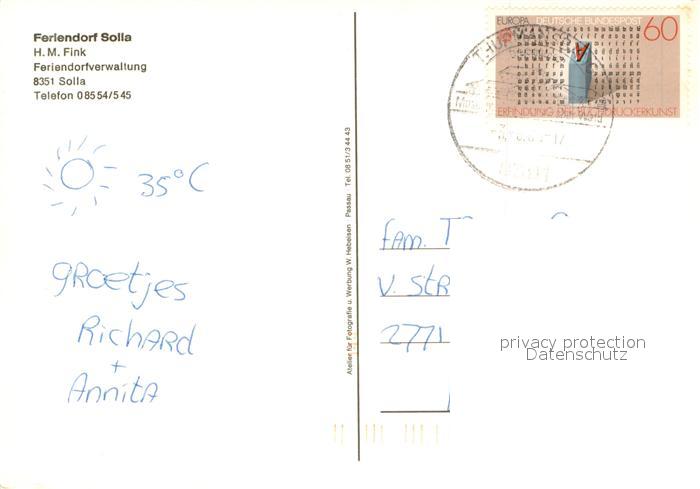 Feriendorf Solla
H. M. Fink
Feriendorfverwaltung
8351 Solla
Telefon 0 85 54/5 45
35°C
GROetjes
RicHARd
+
AnnitA
Atelier für Fotografie u. Werbung W. Hebeisen Passau Tel. 08 51/3 44 43
EUROPA DEUTSCHE BUNDESPOST 60
A
ERFINDUNG DER BUCHDRUCKERKUNST
FAM. T
V. STR
2771
privacy protection
Datenschutz